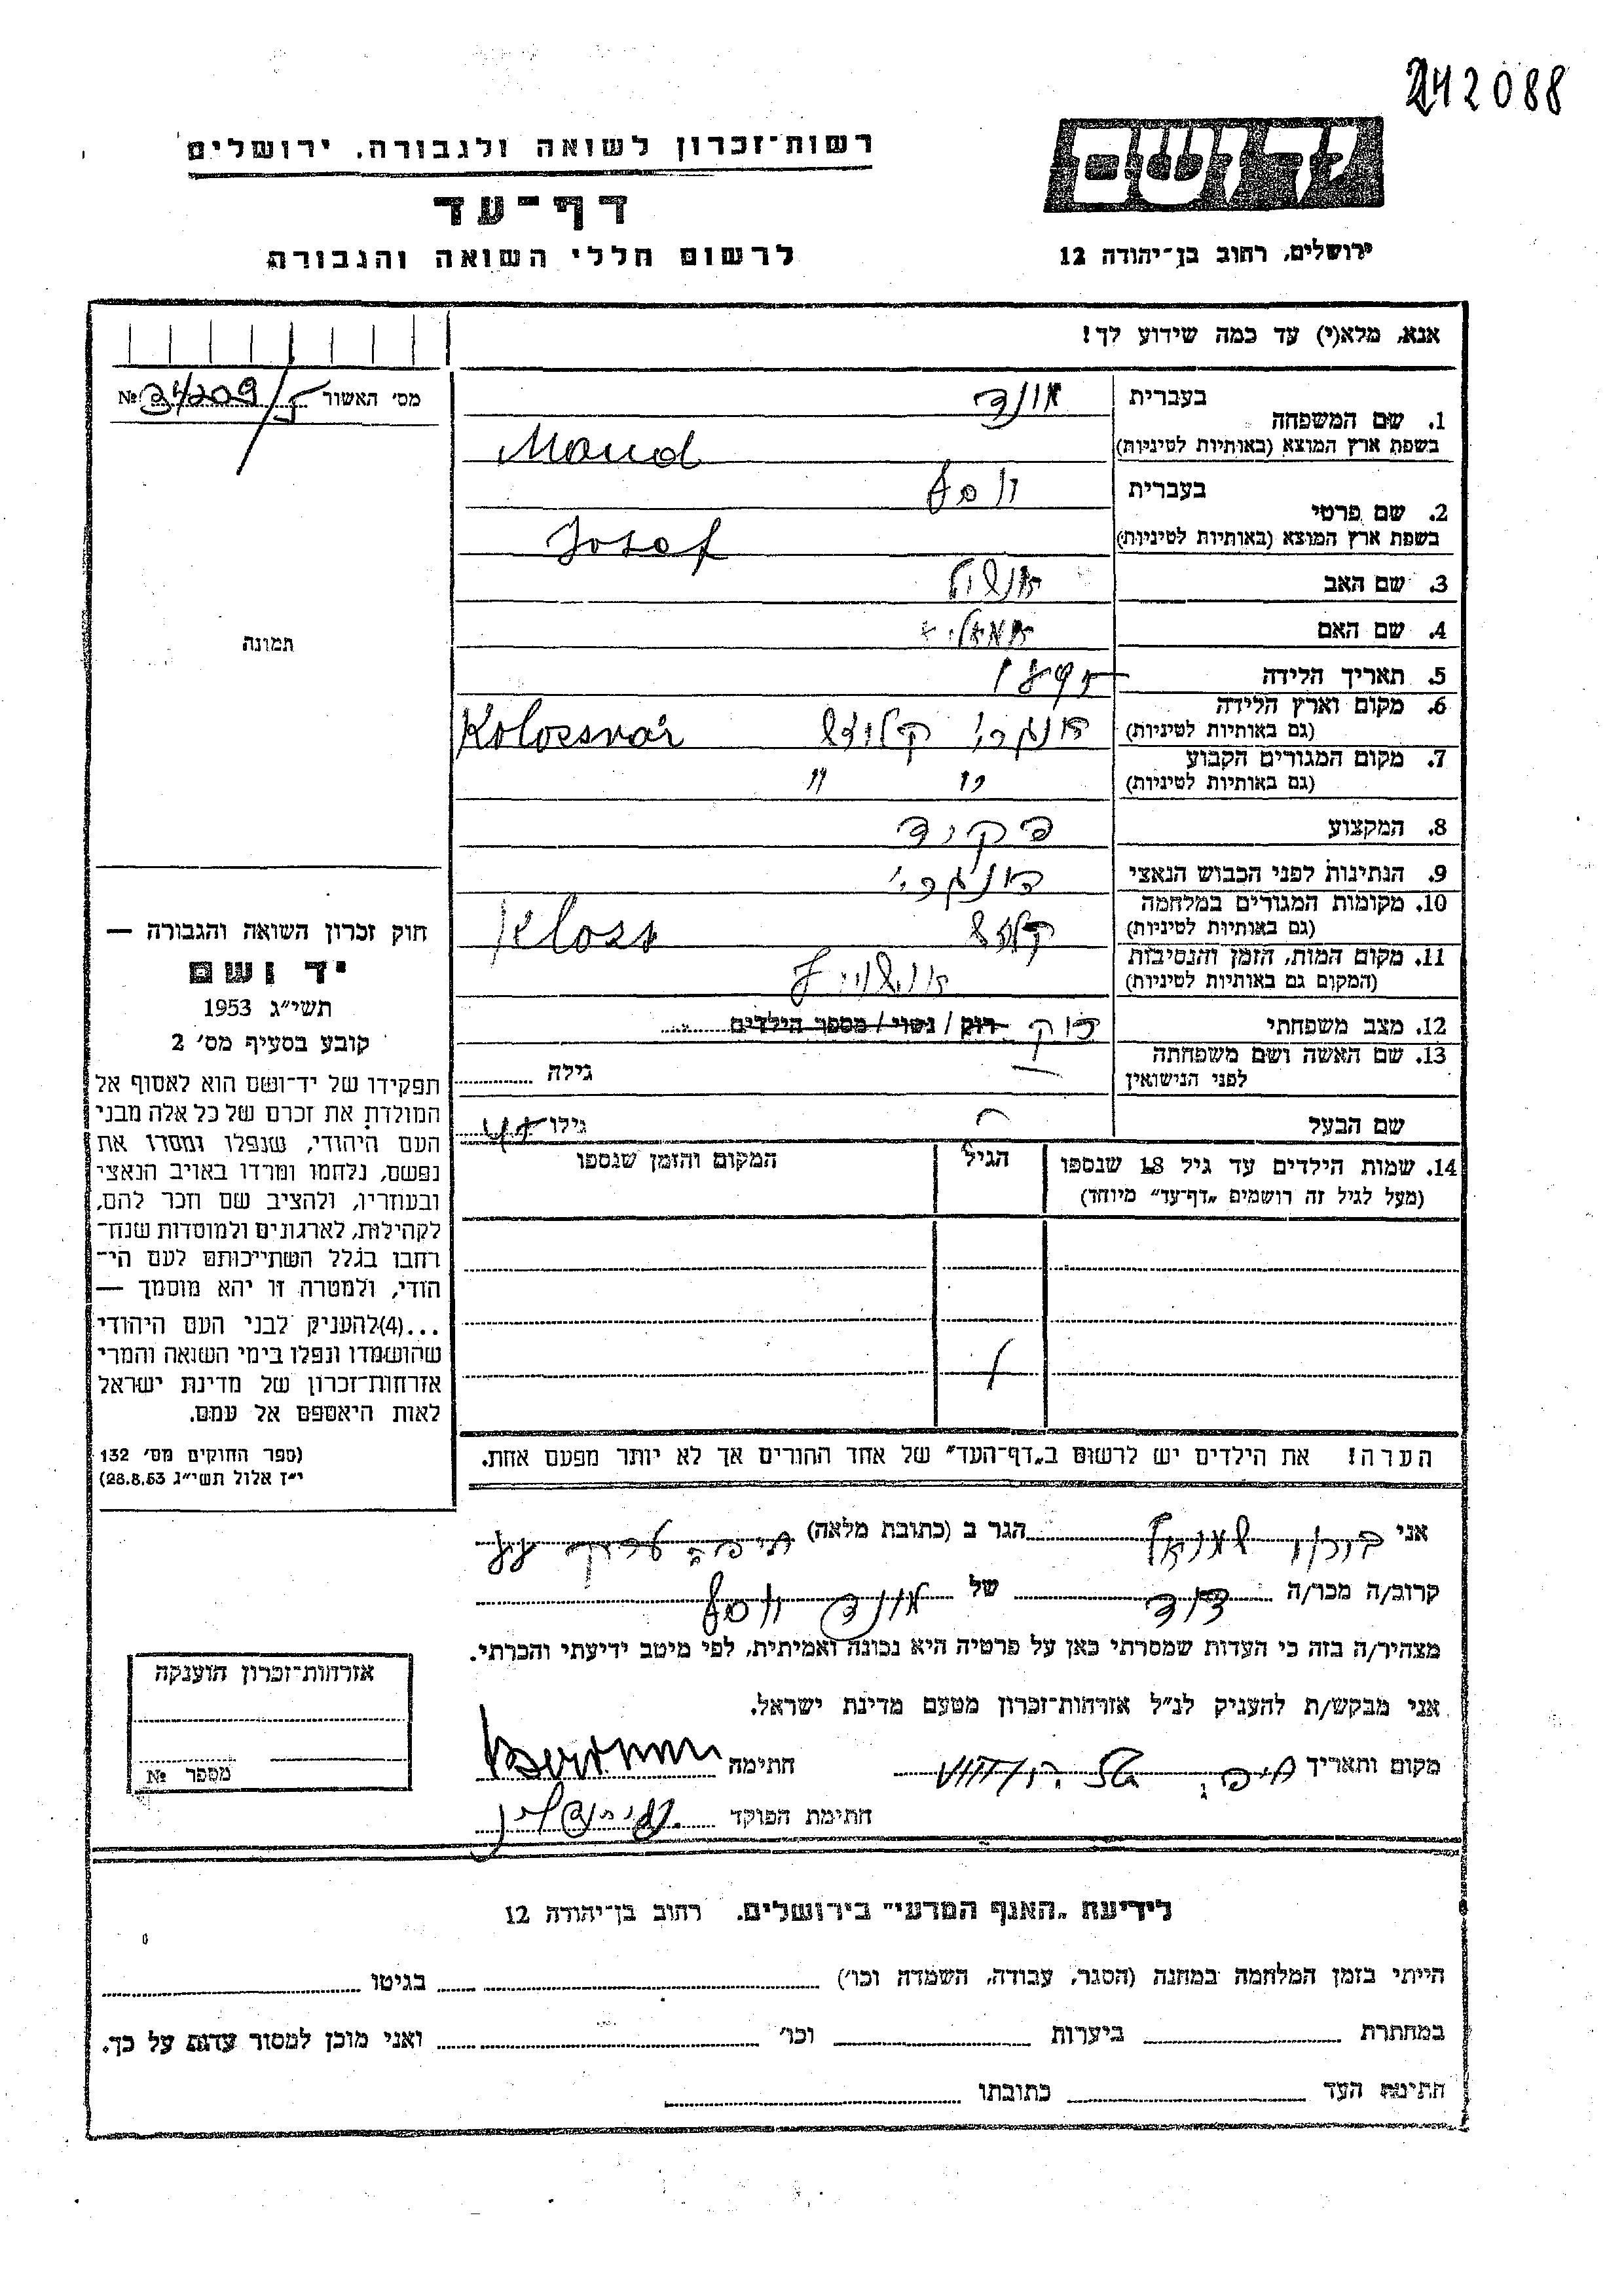 242088
יד ושם
רשות־זכרון לשואה ולגבורה, ירושלים
דף־עד
לרשום חללי השואה והגבורה
ירושלים, רחוב בן־יהודה 12
אנא, מלא(י) עד כמה שידוע לך!
מס' האשור № 34209/5
1. שם המשפחה
בעברית
בשפת ארץ המוצא (באותיות לטיניות)
2. שם פרטי
בעברית יוסף
בשפת ארץ המוצא (באותיות לטיניות) Josef
3. שם האב
4. שם האם
תמונה
5. תאריך הלידה
6. מקום וארץ הלידה
(גם באותיות לטיניות) הונגרי קלוז' Kolossvár
7. מקום המגורים הקבוע
(גם באותיות לטיניות) " "
8. המקצוע פקיד
9. הנתינות לפני הכבוש הנאצי הונגרי
10. מקומות המגורים במלחמה
(גם באותיות לטיניות)
11. מקום המות, הזמן והנסיבות
(המקום גם באותיות לטיניות) אושוויץ
12. מצב משפחתי רוק רוק / נשוי / מספר הילדים
13. שם האשה ושם משפחתה
לפני הנישואין
גילה
שם הבעל
גילו
14. שמות הילדים עד גיל 18 שנספו
(מעל לגיל זה רושמים „דף־עד" מיוחד)
הגיל
המקום והזמן שנספו
חוק זכרון השואה והגבורה —
יד ושם
תשי"ג 1953
קובע בסעיף מס' 2
תפקידו של יד־ושם הוא לאסוף אל
המולדת את זכרם של כל אלה מבני
העם היהודי, שנפלו ומסרו את
נפשם, נלחמו ומרדו באויב הנאצי
ובעוזריו, ולהציב שם וזכר להם,
לקהילות, לארגונים ולמוסדות שנח־
רבו בגלל השתייכותם לעם הי־
הודי, ולמטרה זו יהא מוסמך —
...(4)להעניק לבני העם היהודי
שהושמדו ונפלו בימי השואה והמרי
אזרחות־זכרון של מדינת ישראל
לאות היאספם אל עמם.
(ספר החוקים מס' 132
י"ז אלול תשי"ג 28.8.53)
הערה! את הילדים יש לרשום ב„דף־העד" של אחד ההורים אך לא יותר מפעם אחת.
אני הגר ב (כתובת מלאה)
קרוב/ה מכר/ה דוד של יוסף
מצהיר/ה בזה כי העדות שמסרתי כאן על פרטיה היא נכונה ואמיתית, לפי מיטב ידיעתי והכרתי.
אני מבקש/ת להעניק לנ"ל אזרחות־זכרון מטעם מדינת ישראל.
מקום ותאריך חתימה
חתימת הפוקד
אזרחות־זכרון הוענקה
מספר №
לידיעת „האגף המדעי" בירושלים, רחוב בן־יהודה 12
הייתי בזמן המלחמה במחנה (הסגר, עבודה, השמדה וכו') בגיטו
במחתרת ביערות וכו' ואני מוכן למסור עדות על כך.
חתימת העד כתובתו